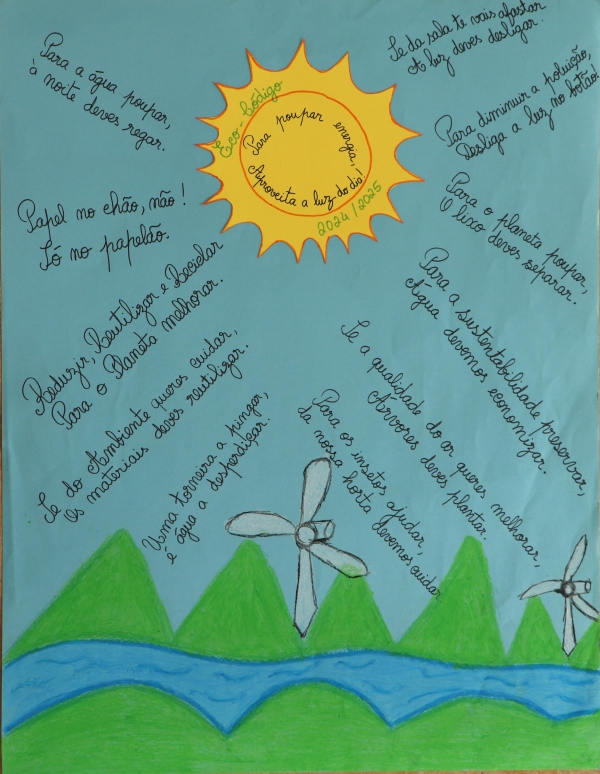 Eco-Código
Para poupar energia,
Aproveita a luz do dia!
2024/2025
Para a água poupar,
à noite deves regar.
Papel no chão, não!
Só no papelão.
Reduzir, Reutilizar e Reciclar
Para o Planeta melhorar.
Se do Ambiente queres cuidar,
Os materiais deves reutilizar.
Uma torneira a pingar,
é água a desperdiçar.
Se da sala te vais afastar
A luz deves desligar.
Para diminuir a poluição,
Desliga a luz no botão!
Para o planeta poupar,
O lixo deves separar.
Para a sustentabilidade preservar,
Água devemos economizar.
Se a qualidade do ar queres melhorar,
Árvores deves plantar.
Para os insetos ajudar,
da nossa horta devemos cuidar